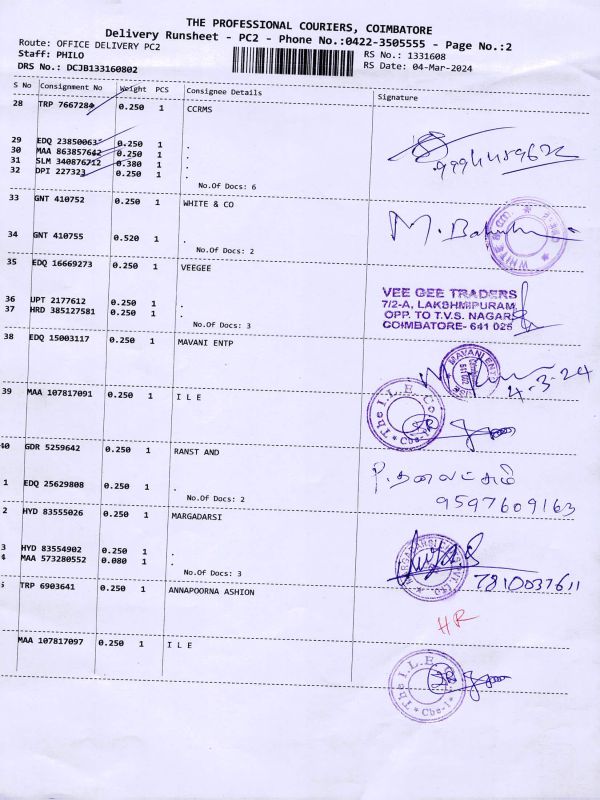 THE PROFESSIONAL COURIERS, COIMBATORE
Delivery Runsheet - PC2 - Phone No.:0422-3505555 - Page No.:2
Route: OFFICE DELIVERY PC2
RS No.: 1331608
Staff: PHILO
RS Date: 04-Mar-2024
DRS No.: DCJB133160802
S No Consignment No Weight PCS Consignee Details Signature
28 TRP 7667284 0.250 1 CCRMS
29 EDQ 23850063 0.250 1 .
30 MAA 863857642 0.250 1 .
31 SLM 340876212 0.380 1 .
32 DPI 227323 0.250 1 .
No.Of Docs: 6
33 GNT 410752 0.250 1 WHITE & CO
M.
34 GNT 410755 0.520 1 .
No.Of Docs: 2
35 EDQ 16669273 0.250 1 VEEGEE
VEE GEE TRADERS
7/2-A, LAKSHMIPURAM,
OPP. TO T.V.S. NAGAR,
COIMBATORE- 641 025
36 UPT 2177612 0.250 1 .
37 HRD 385127581 0.250 1 .
No.Of Docs: 3
38 EDQ 15003117 0.250 1 MAVANI ENTP
MAVANI ENTP
4-3-24
39 MAA 107817091 0.250 1 I L E
The I.L.E. Co
Cbe-1
40 GDR 5259642 0.250 1 RANST AND
9597609163
1 EDQ 25629808 0.250 1 .
No.Of Docs: 2
2 HYD 83555026 0.250 1 MARGADARSI
3 HYD 83554902 0.250 1 .
4 MAA 573280552 0.080 1 .
No.Of Docs: 3
7810037611
5 TRP 6903641 0.250 1 ANNAPOORNA ASHION
HR
MAA 107817097 0.250 1 I L E
The I.L.E
Cbe-1